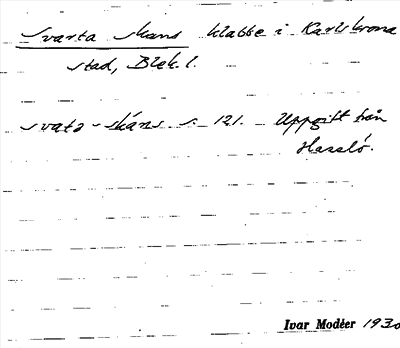 Svarta skans klabbe i Karlskrona
stad, Blek. l.
svata-skáns s. 121. Uppgift från
Hasslö.
Ivar Modéer 1930